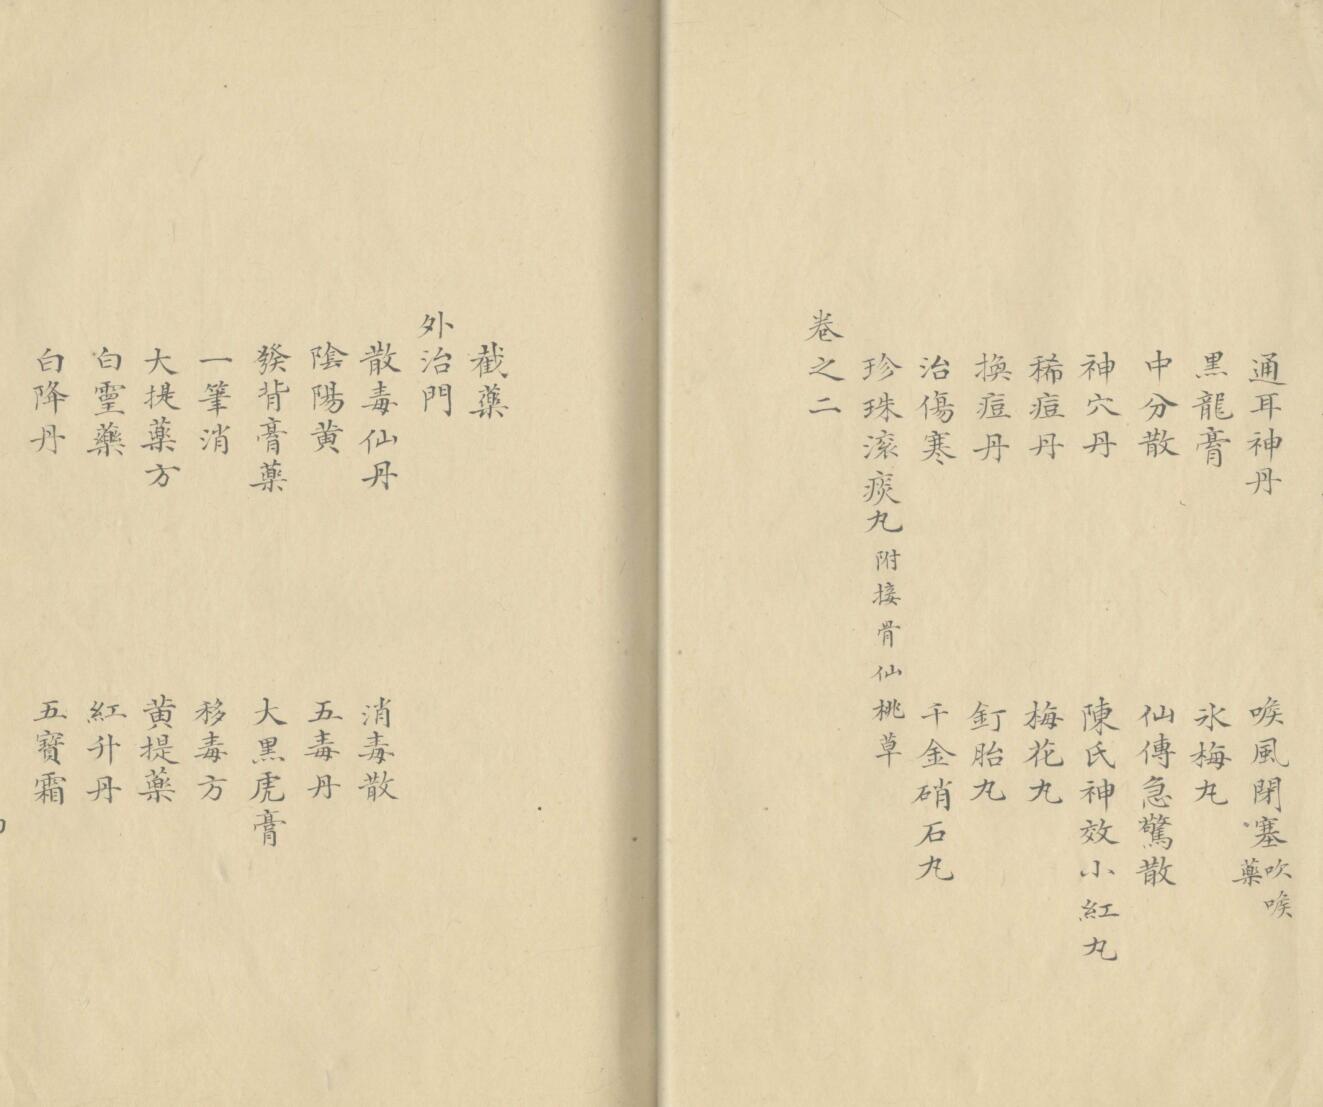 通耳神丹　喉風閉塞吹喉藥
黑龍膏　氷梅丸
中分散　仙傳急驚散
神穴丹　陳氏神效小紅丸
稀痘丹　梅花丸
換痘丹　釘胎丸
治傷寒　千金硝石丸
珍珠滾痰丸附接骨仙桃草
卷之二
截藥
外治門
散毒仙丹　消毒散
陰陽黄　五毒丹
發背膏藥　大黑虎膏
一筆消　移毒方
大提藥方　黄提藥
白靈藥　紅升丹
白降丹　五寶霜